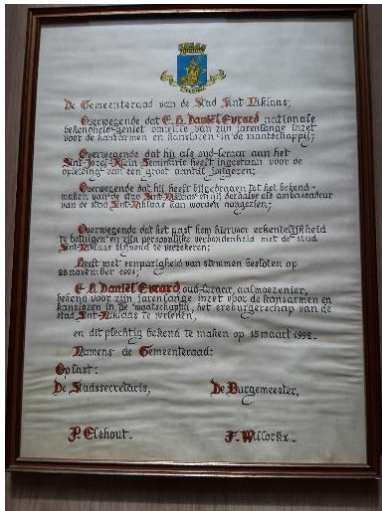 De Gemeenteraad van de Stad Sint Niklaas;
Overwegende dat E.H. Daniël Evrard nationale
bekendheid geniet omwille van zijn jarenlange inzet
voor de kansarmen en kanslozen in de maatschappij;
Overwegende dat hij als oud-leraar aan het
Sint-Jozef-Klein-Seminarie heeft ingestaan voor de
opleiding van een groot aantal jongeren;
Overwegende dat hij heeft bijgedragen tot het bekend-
maken van de stad Sint-Niklaas en derhalve als ambassadeur
van de stad Sint-Niklaas kan worden aanzien;
Overwegende dat het past hem hiervoor erkentelijkheid
te betuigen en zijn persoonlijke verbondenheid met de stad
Sint-Niklaas blijvend te verzekeren;
Heeft met eenparigheid van stemmen besloten op
november
E.H. Daniël Evrard oud-leraar, aalmoezenier,
bekend voor zijn jarenlange inzet voor de kansarmen en
kanslozen in de maatschappij, het ereburgerschap van de
stad Sint-Niklaas te verlenen,
en dit plechtig bekend te maken op 15 maart 1992.
Namens de Gemeenteraad:
Op last:
De Stadssecretaris, De Burgemeester,
P. Elshout. F. Willockx.